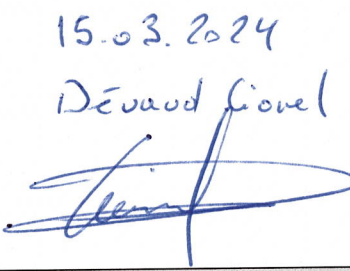 15.03.2024
Dévaud Lionel